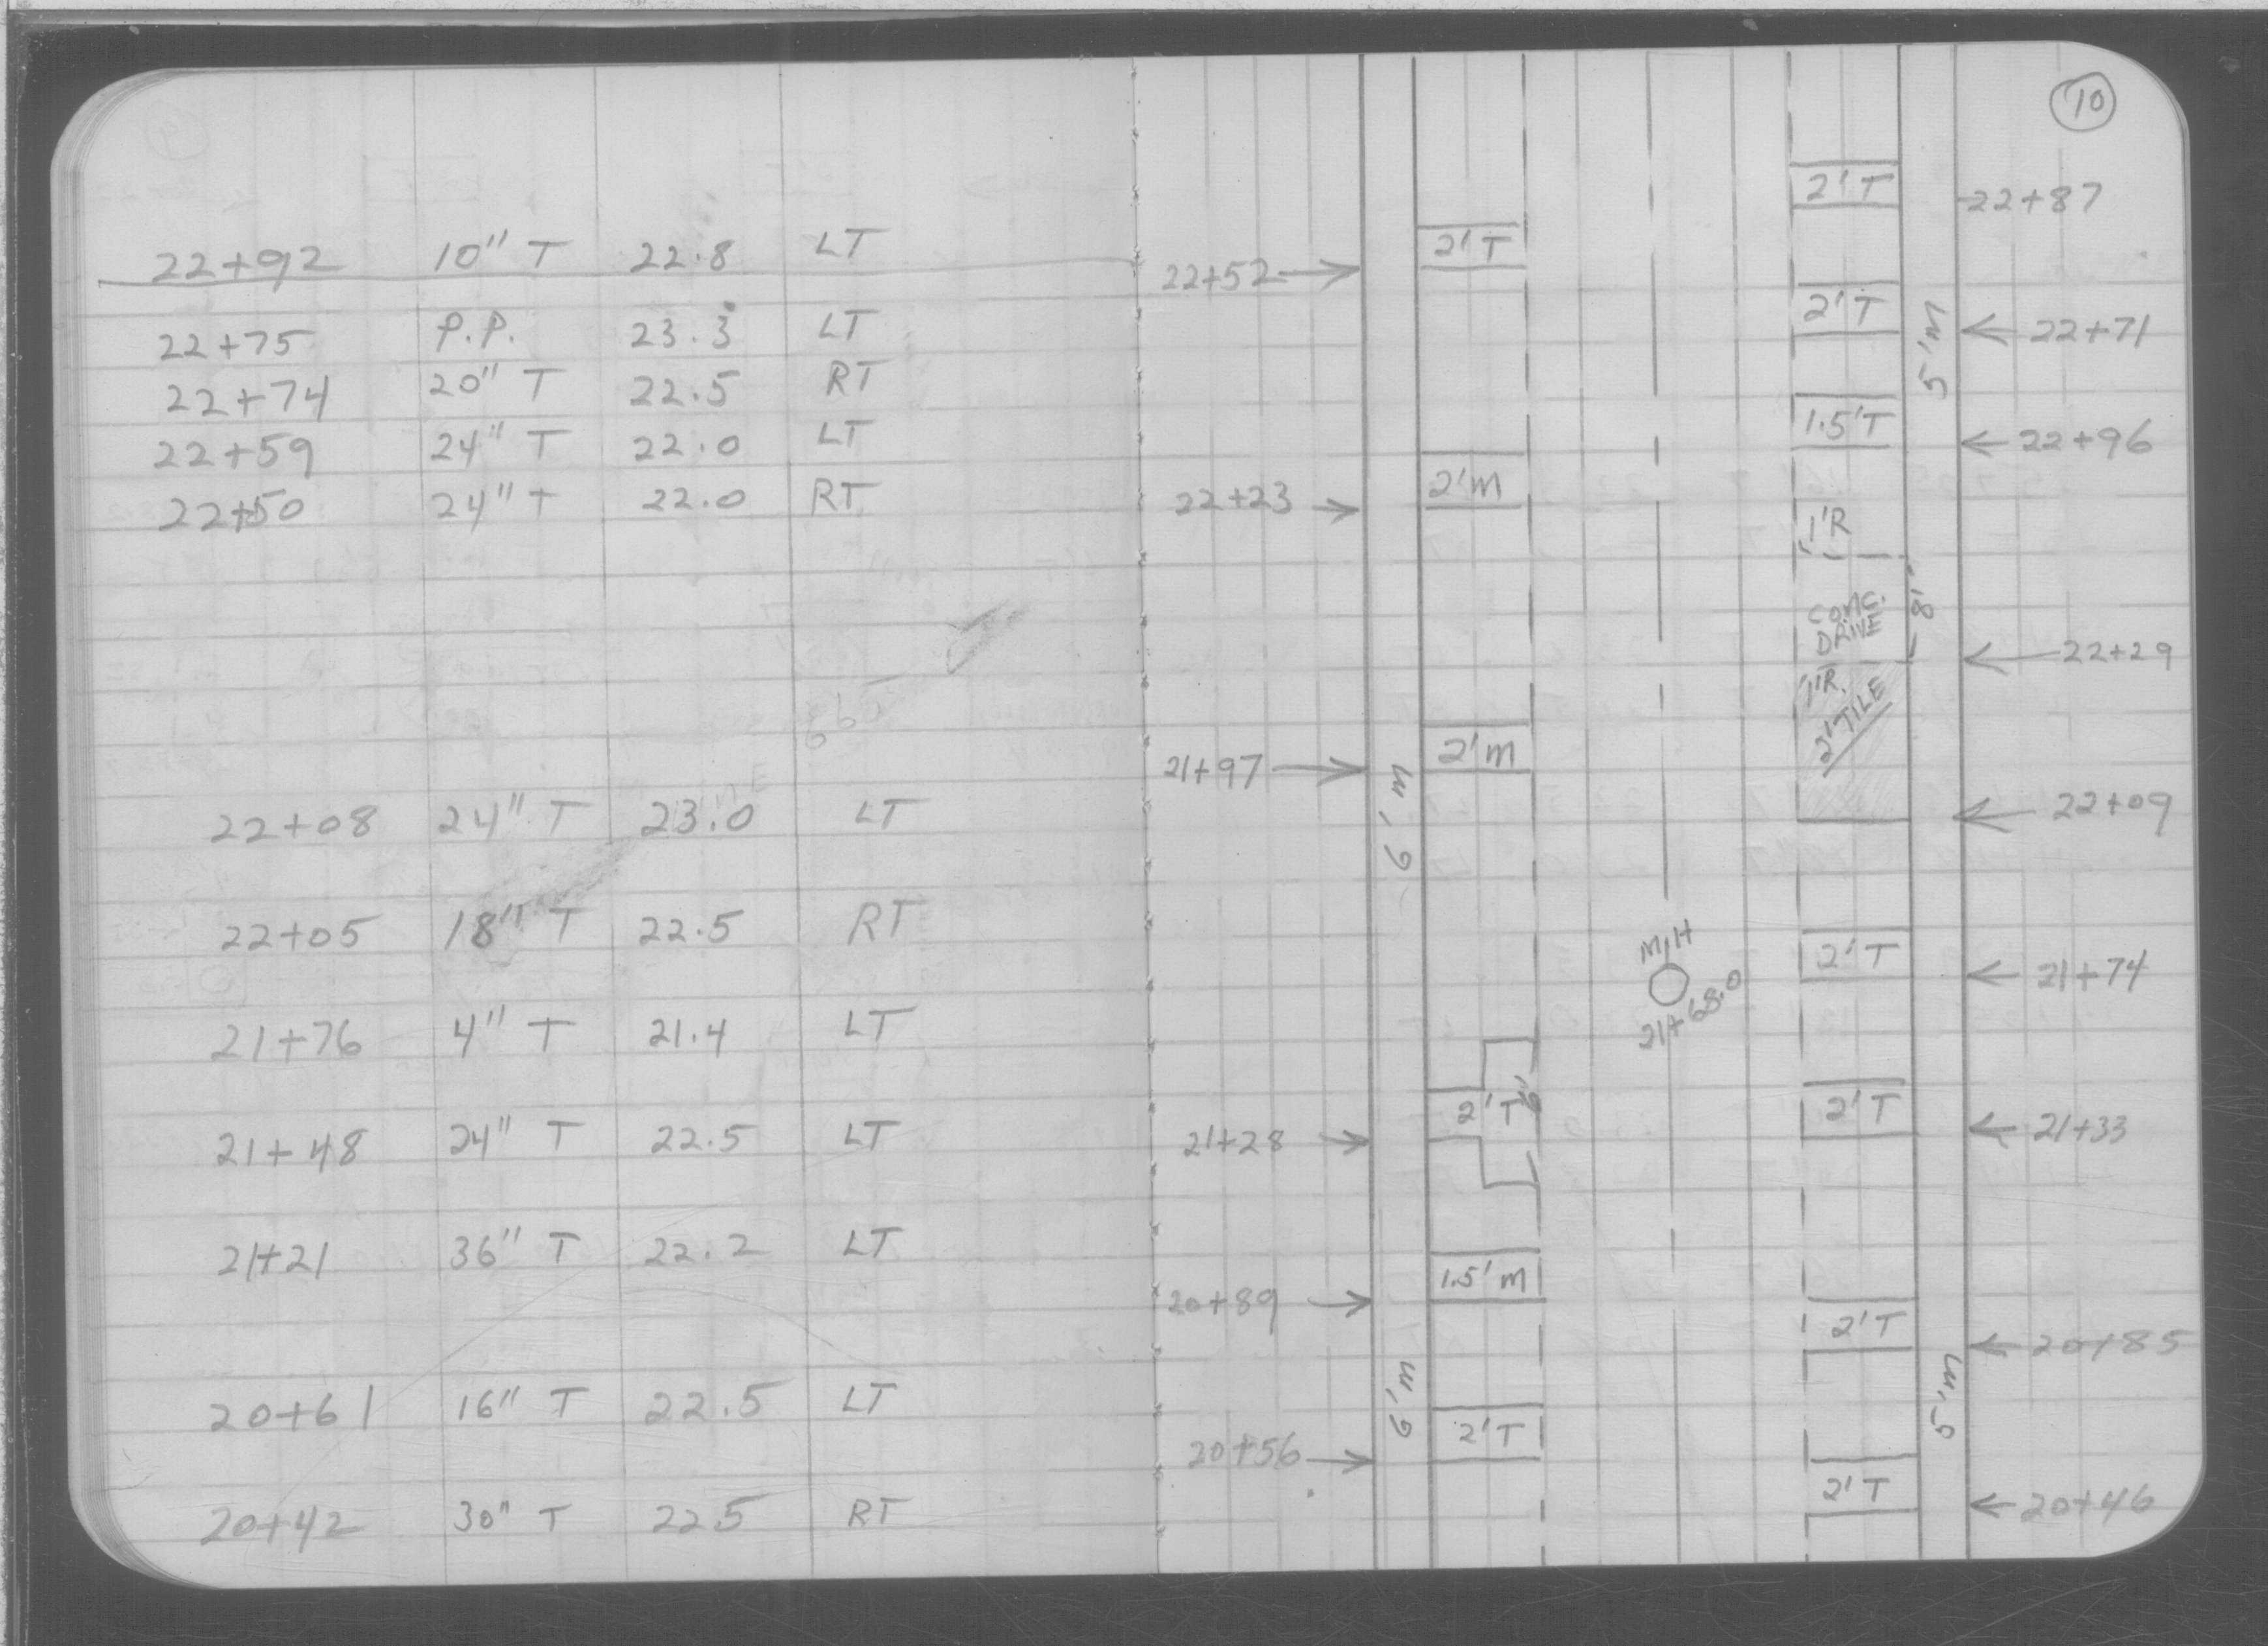 10
22+92 10" T 22.8 LT
22+75 P.P. 23.3 LT
22+74 20" T 22.5 RT
22+59 24" T 22.0 LT
22+50 24" T 22.0 RT
22+08 24" T 23.0 LT
22+05 18" T 22.5 RT
21+76 4" T 21.4 LT
21+48 24" T 22.5 LT
21+21 36" T 22.2 LT
20+61 16" T 22.5 LT
20+42 30" T 22.5 RT
22+52
22+23
21+97
21+28
20+89
20+56
6'M
6'M
2'T
2'M
2'M
2'T
1.5'M
2'T
M.H
21+68.0
2'T
2'T
1.5'T
1'R
CONC.
DRIVE
8'
1'R.
2'TILE
2'T
2'T
2'T
2'T
5'M
5'M
22+87
22+71
22+96
22+29
22+09
21+74
21+33
20+85
20+46